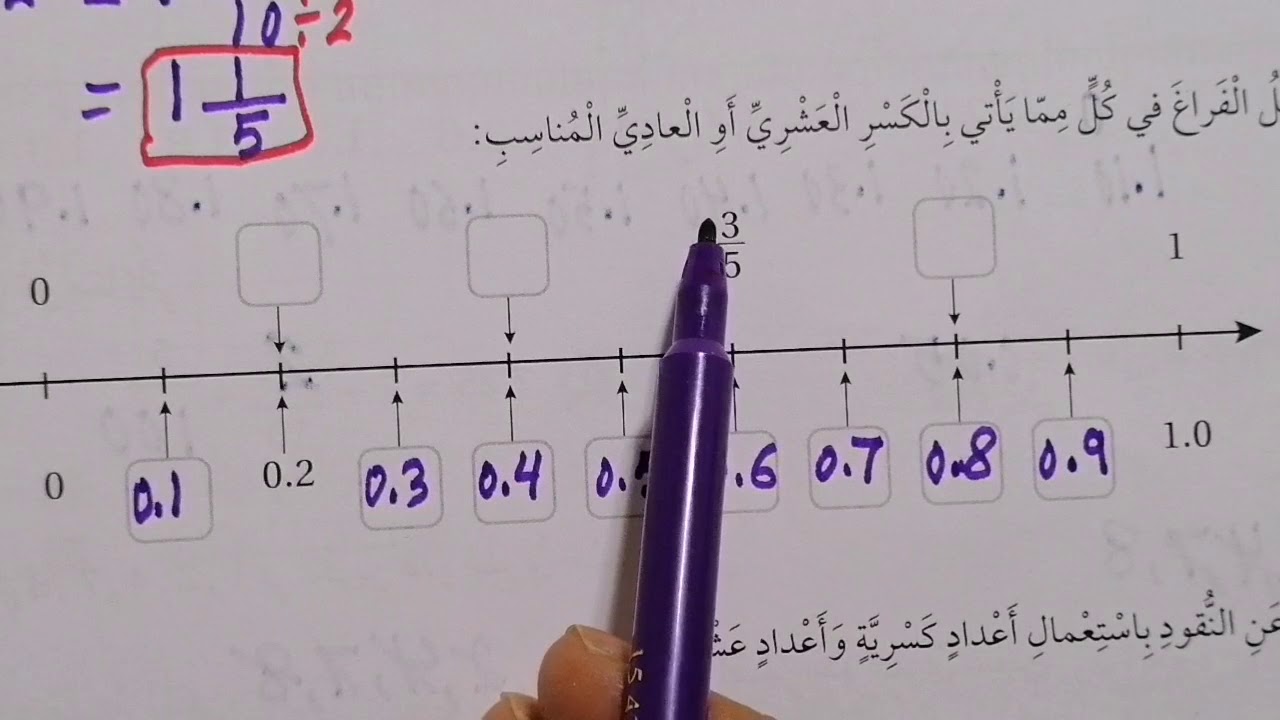 10÷2
= 1 1/5
الْفَراغَ في كُلٍّ مِمّا يَأْتي بِالْكَسْرِ الْعَشْرِيِّ أَوِ الْعادِيِّ الْمُناسِبِ:
0 3/5 1
0 0.1 0.2 0.3 0.4 0.7 0.8 0.9 1.0
عَنِ النُّقودِ بِاسْتِعْمالِ أَعْدادٍ كَسْرِيَّةٍ وَأَعْدادٍ